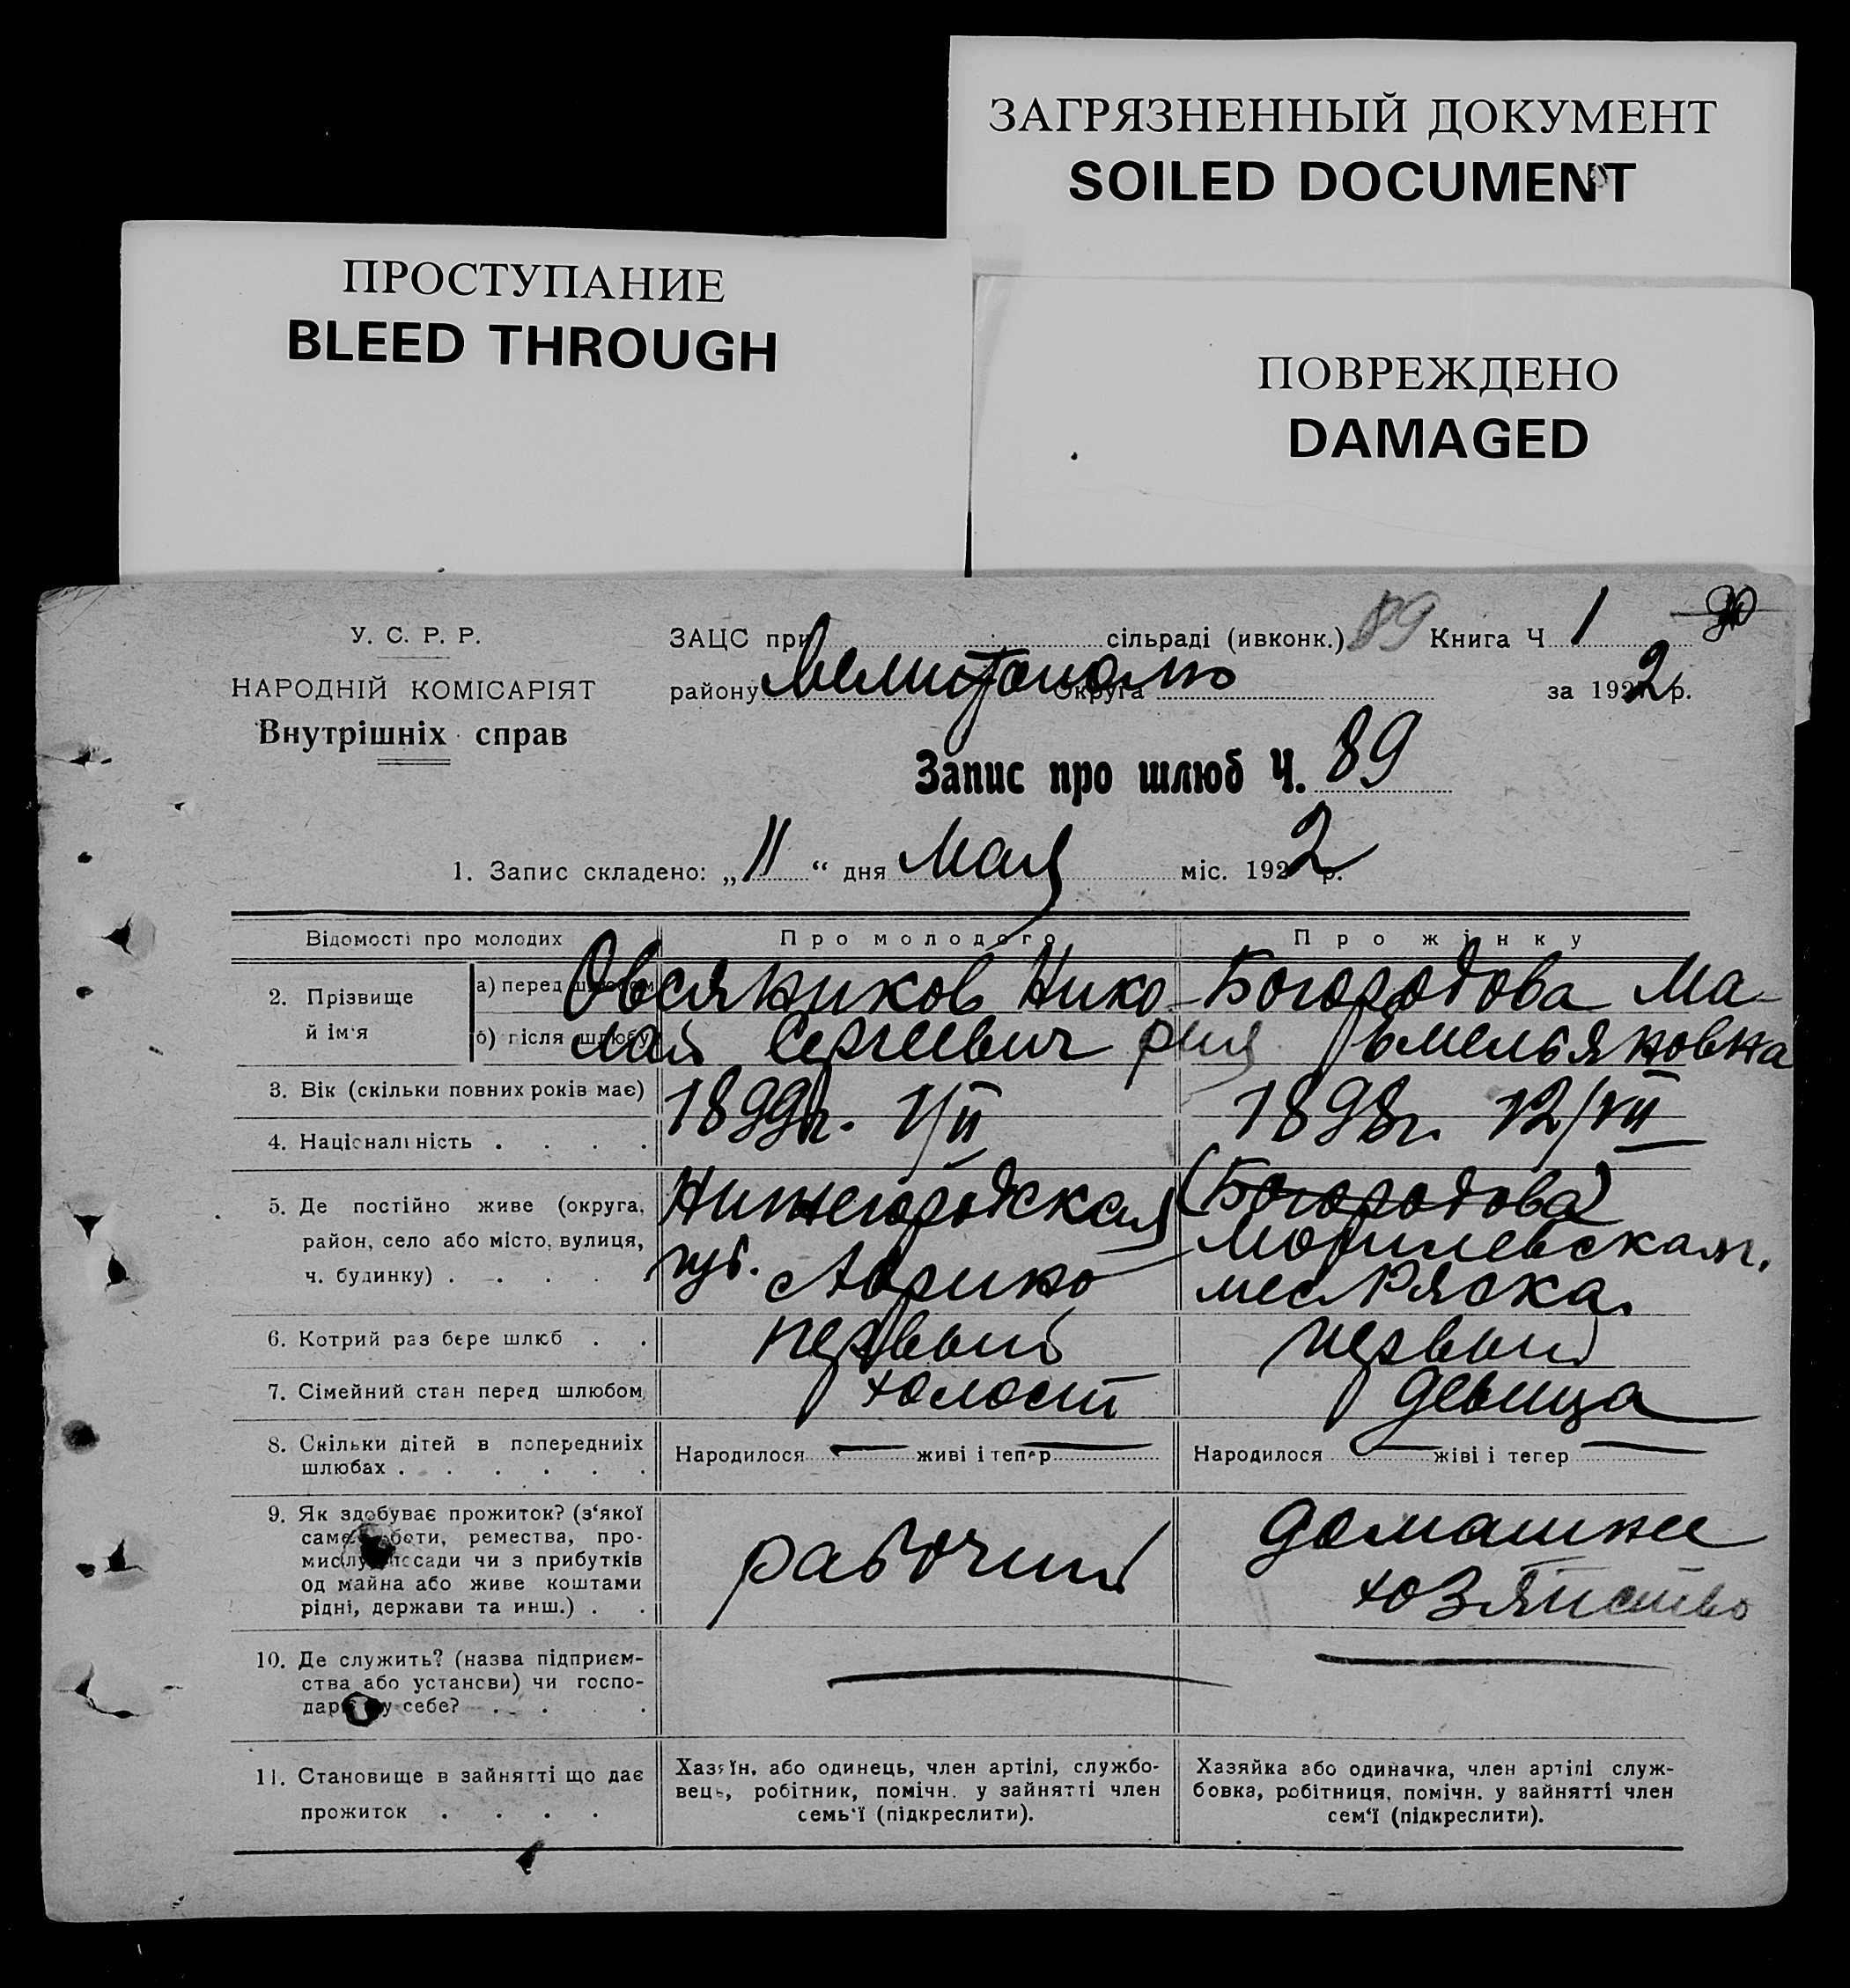 ЗАГРЯЗНЕННЫЙ ДОКУМЕНТ
SOILED DOCUMENT
ПРОСТУПАНИЕ
BLEED THROUGH
ПОВРЕЖДЕНО
DAMAGED
У. С. Р. Р.
НАРОДНІЙ КОМІСАРІЯТ
Внутрішніх справ
ЗАЦС при сільраді (ивконк.) 89 Книга Ч 1
району Мелитополь Округа за 1922 р.
Запис про шлюб Ч. 89
1. Запис складено: „11“ дня Мая міс. 1922 р.
Відомості про молодих
Про молодого
Про жінку
2. Прізвище й ім'я
а) перед шлюбом
б) після шлюбу
Овсяников Нико-
лай Сергеевич
Богородова Ма-
рия Емельяновна
3. Вік (скільки повних років має)
1899г. 1/II
1898г. 12/VII
4. Національність . . . .
5. Де постійно живе (округа,
район, село або місто, вулиця,
ч. будинку) . . . .
Нижегородская
губ.
(Богородова)
Могилевская г.
мес Ряска.
6. Котрий раз бере шлюб . .
первый
первый
7. Сімейний стан перед шлюбом
холост
девица
8. Скільки дітей в попередніх
шлюбах . . . . . .
Народилося — живі і тепер —
Народилося — жіві і тепер —
9. Як здобуває прожиток? (з'якої
саме роботи, ремества, про-
мислу, посади чи з прибутків
од майна або живе коштами
рідні, держави та инш.) . .
рабочий
домашнее
хозяйство
10. Де служить? (назва підприєм-
ства або установи) чи госпо-
дарює у себе? . . . .
—
—
11. Становище в зайнятті що дає
прожиток . . . .
Хазяїн, або одинець, член артілі, службо-
вець, робітник, помічн. у зайнятті член
семь'ї (підкреслити).
Хазяйка або одиначка, член артілі служ-
бовка, робітниця, помічн. у зайнятті член
сем'ї (підкреслити).